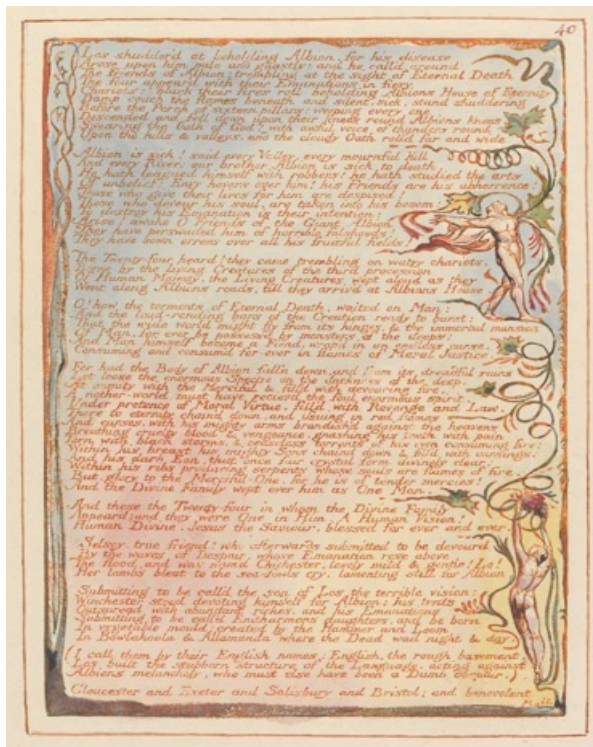 40
Los shudder'd at beholding Albion, for his disease
Arose upon him pale and ghastly: and he call'd around
The Friends of Albion: trembling at the sight of Eternal Death
The four appear'd with their Emanations in fiery
Chariots: black their fires roll beholding Albions House of Eternity
Damp couch the flames beneath and silent, sick, stand shuddering
Before the Porch of sixteen pillars: weeping every one
Descended and fell down upon their knees round Albions knees,
Swearing the Oath of God! with awful voice of thunders round
Upon the hills & valleys, and the cloudy Oath roll'd far and wide
Albion is sick! said every Valley, every mournful Hill
And every River: our brother Albion is sick to death.
He hath leagued himself with robbers: he hath studied the arts
Of unbelief: Envy hovers over him! his Friends are his abhorrence!
Those who give their lives for him are despised!
Those who devour his soul, are taken into his bosom:
To destroy his Emanation is their intention:
Arise! awake O Friends of the Giant Albion
They have perswaded him of horrible falshoods!
They have sown errors over all his fruitful fields!
The Twenty-four heard! they came trembling on watry chariots.
Borne by the Living Creatures of the third procession
Of Human Majesty, the Living Creatures wept aloud as they
Went along Albions roads, till they arriv'd at Albions House.
O! how the torments of Eternal Death, waited on Man:
And the loud-rending bars of the Creation ready to burst:
That the wide world might fly from its hinges, & the immortal mansion
Of Man, for ever be possess'd by monsters of the deeps:
And Man himself become a Fiend, wrap'd in an endless curse,
Consuming and consum'd for-ever in flames of Moral Justice.
For had the Body of Albion fall'n down, and from its dreadful ruins
Let loose the enormous Spectre on the darkness of the deep,
At enmity with the Merciful & fill'd with devouring fire,
A nether-world must have recievd the foul enormous spirit,
Under pretence of Moral Virtue, fill'd with Revenge and Law.
There to eternity chain'd down, and issuing in red flames
And curses, with his mighty arms brandish'd against the heavens
Breathing cruelty blood & vengeance, gnashing his teeth with pain
Torn with black storms, & ceaseless torrents of his own consuming fire:
Within his breast his mighty Sons chaind down & fill'd with cursings:
And his dark Eon, that once fair crystal form divinely clear:
Within his ribs producing serpents whose souls are flames of fire.
But, glory to the Merciful-One, for he is of tender mercies!
And the Divine Family wept over him as One Man.
And these the Twenty-four in whom the Divine Family
Appear'd; and they were One in Him. A Human Vision!
Human Divine, Jesus the Saviour, blessed for ever and ever.
Selsey, true friend! who afterwards submitted to be devourd
By the waves of Despair, whose Emanation rose above
The flood, and was nam'd Chichester, lovely mild & gentle! Lo!
Her lambs bleat to the sea-fowls cry, lamenting still for Albion.
Submitting to be call'd the son of Los the terrible vision:
Winchester stood devoting himself for Albion: his tents
Outspread with abundant riches, and his Emanations
Submitting to be call'd Enitharmons daughters, and be born
In vegetable mould: created by the Hammer and Loom
In Bowlahoola & Allamanda where the Dead wail night & day.
(I call them by their English names: English, the rough basement.
Los built the stubborn structure of the Language, acting against
Albions melancholy, who must else have been a Dumb despair.)
Gloucester and Exeter and Salisbury and Bristol: and benevolent